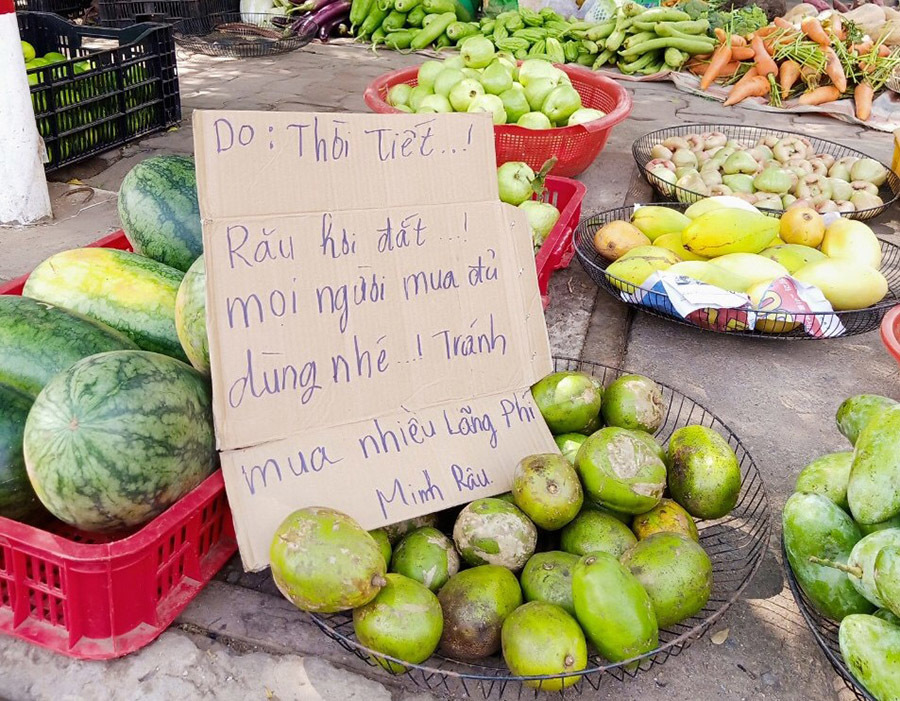 Do : Thời Tiết...!
Rău hơi đắt...!
mọi người mua đủ
dùng nhé...! Tránh
mua nhiều Lãng Phí
Minh Râu.